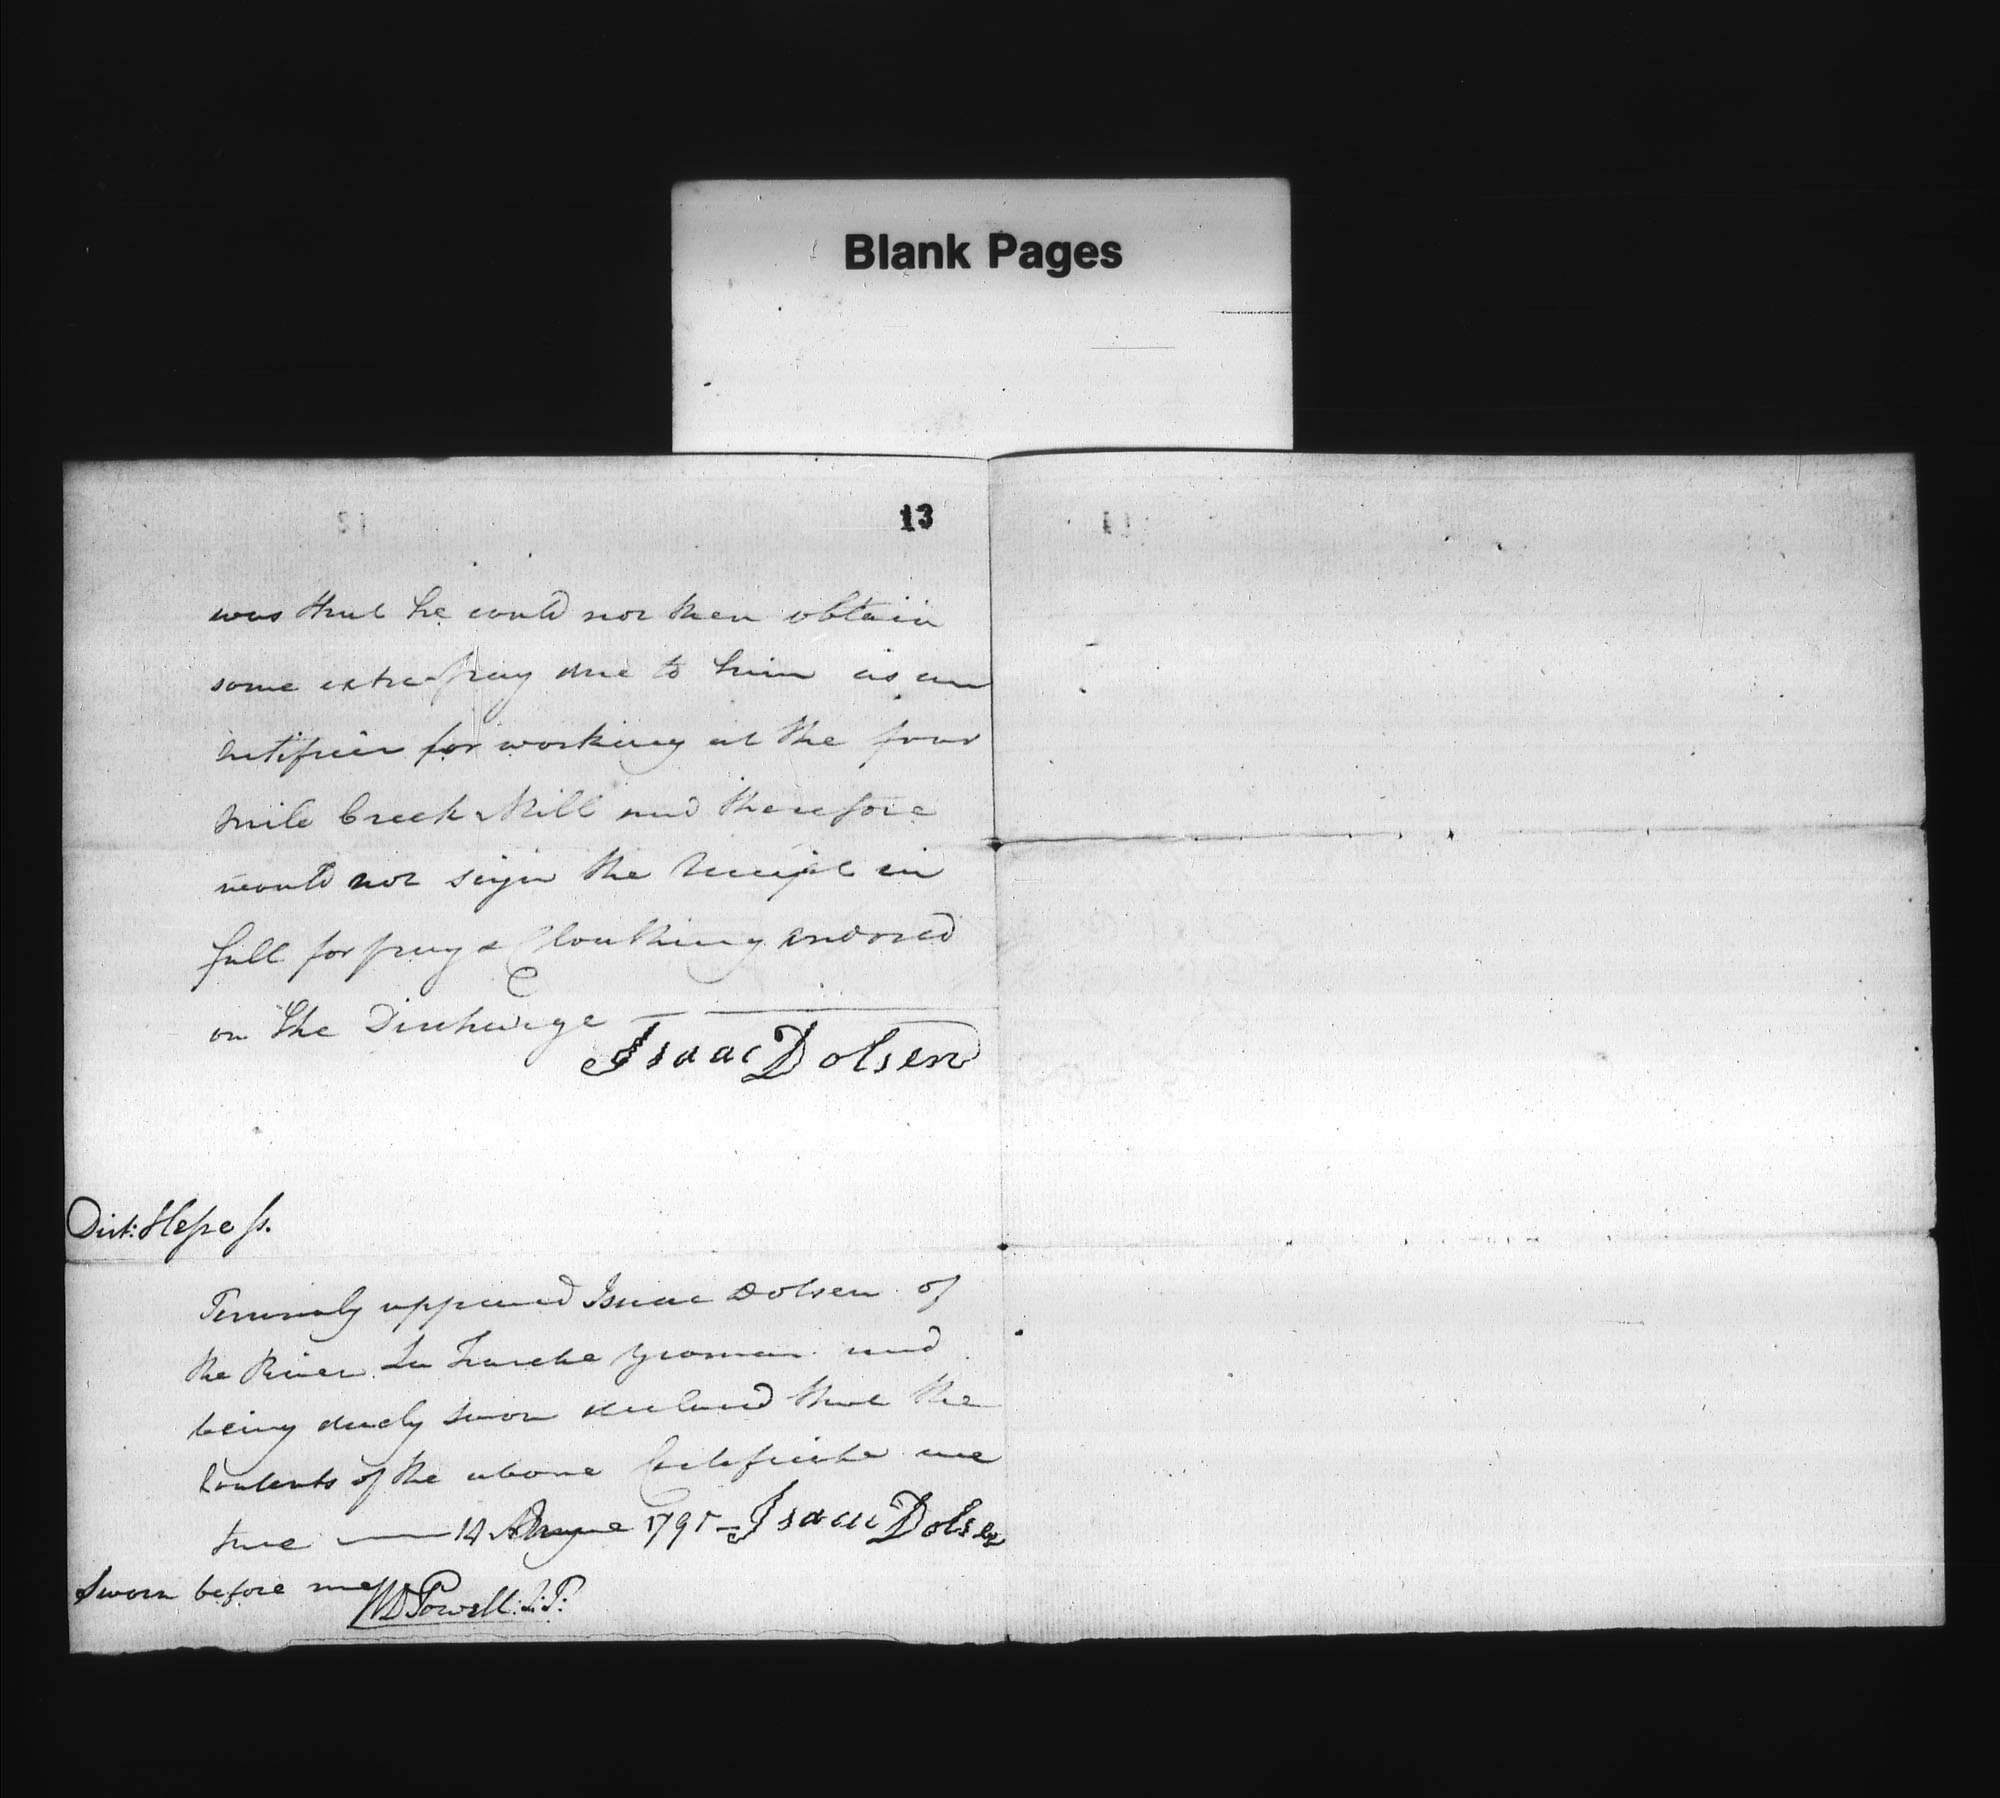 Blank Pages
13
was that he could not then obtain
some extra pay due to him as an
Artificer for working at the four
mile Creek Mill and therefore
would not sign the Receipt in
full for pay & Cloathing endorsed
on the Discharge
Isaac Dolsen
Dist: Hesse ss.
Personaly appeared Isaac Dolsen of
the River La Tranche Yeoman and
being duely sworn declared that the
Contents of the above Certificate are
true — 14 179 — Isaac Dolsen
Sworn before me WDPowell: J: P: